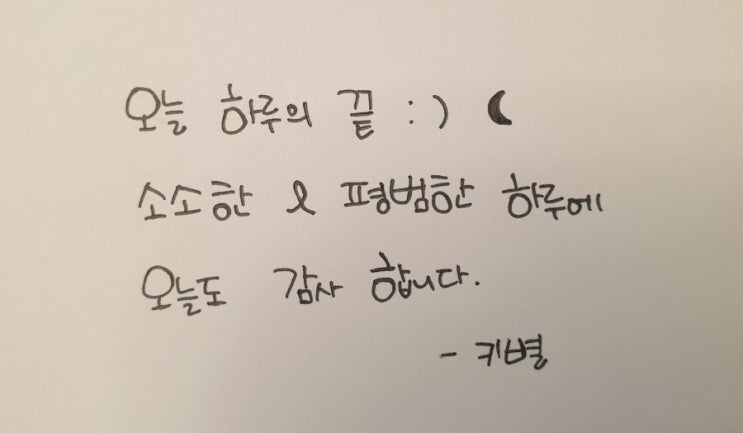 오늘 하루의 끝 :) ☾
소소한 & 평범한 하루에
오늘도 감사 합니다.
- 키별